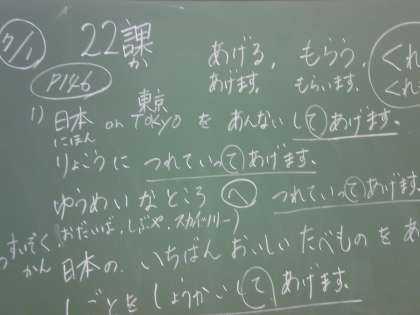 7/1 22課 あげる、もらう、くれ
か あげます。 もらいます。 くれ
P146
東京
1) 日本 on Tokyo を あんないしてあげます。
にほん
りょこうに つれていってあげます。
ゆうめいなところ へ つれていってあげます
すいぞく おだいば、しぶや、スカイツリー)
かん 日本の、いちばん おいしい たべものを あ
しごとを しょうかいして、あげます。